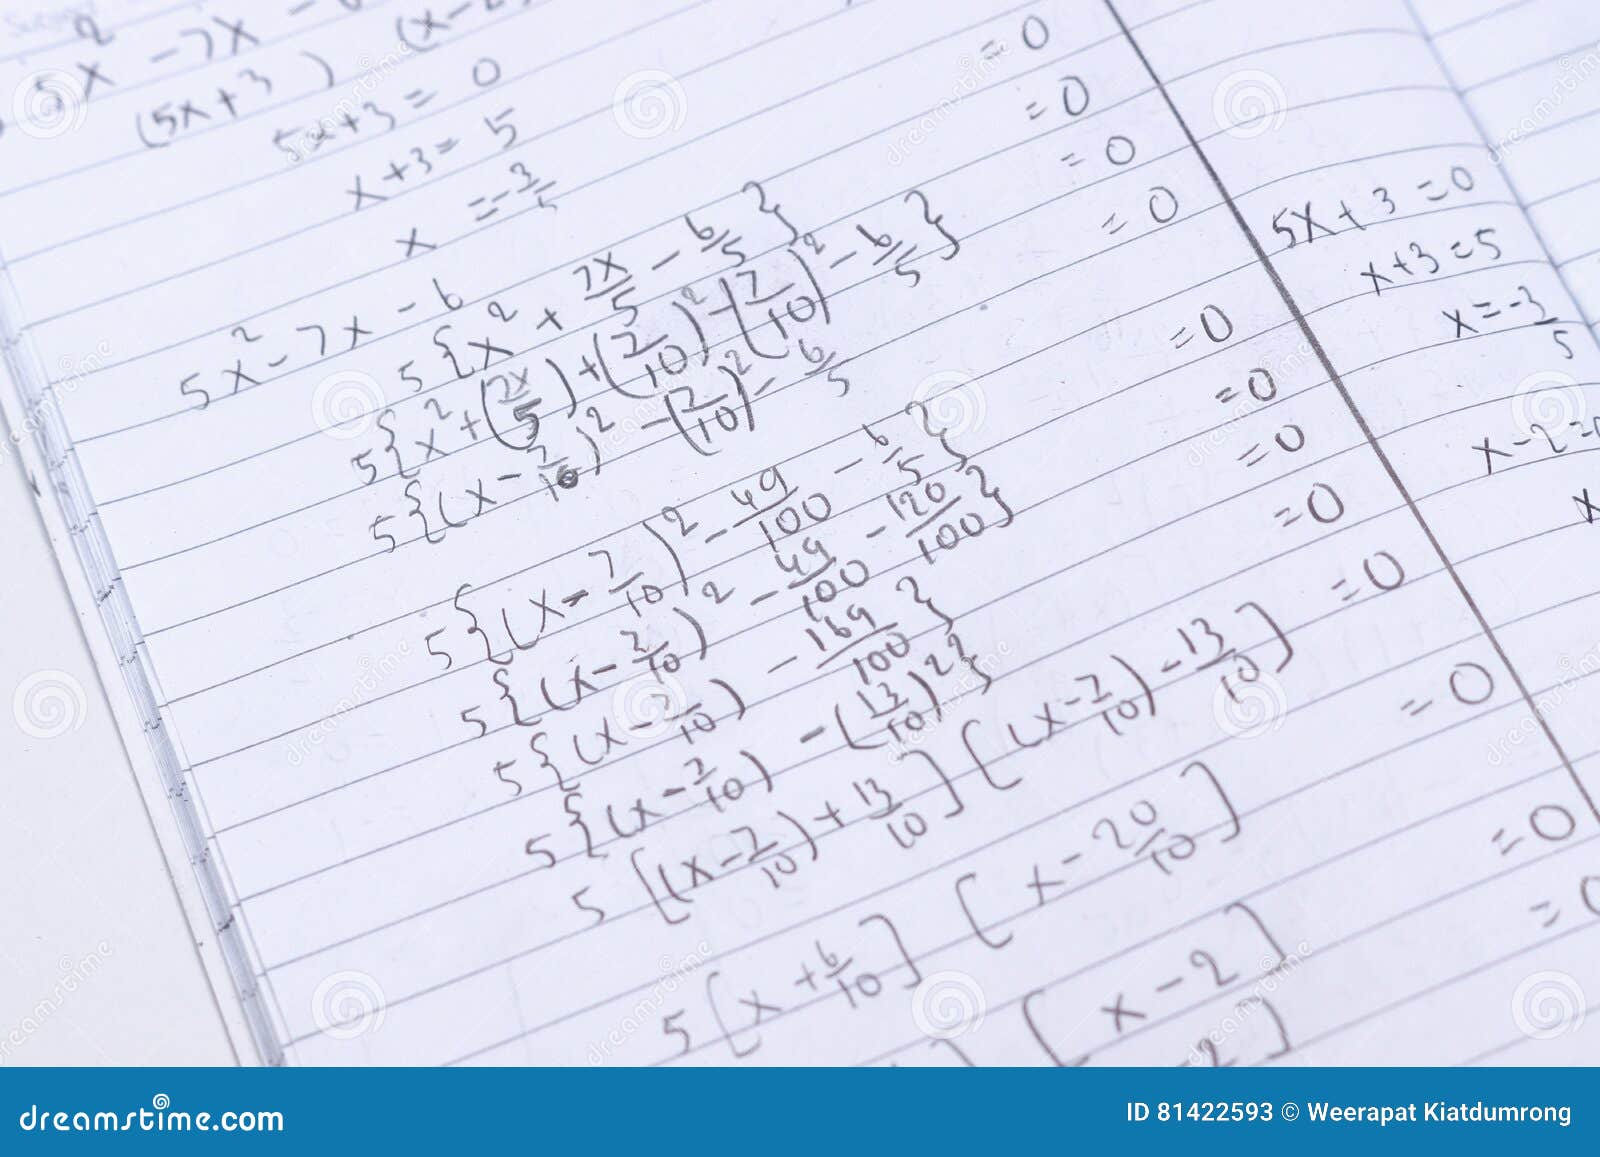 5x² - 7x
(5x+3) (x-2
5x+3 = 0
x+3 = 5
x = -3/5
5x² - 7x - 6 = 0
5{x² + 7x/5 - 6/5} = 0
5{x² + (7x/5) + (7/10)² - (7/10)² - 6/5} = 0
5{(x - 7/10)² - (7/10)² - 6/5 = 0
5{(x - 7/10)² - 49/100 - 6/5} = 0
5{(x - 7/10)² - 49/100 - 120/100} = 0
5{(x - 7/10) - 169/100} = 0
5{(x - 7/10) - (13/10)²} = 0
5[(x - 7/10) + 13/10][(x - 7/10) - 13/10] = 0
5[x + 6/10][x - 20/10] = 0
[x - 2] = 0
5x + 3 = 0
x+3 = 5
x = -3/5
x - 2 =
x
dreamstime.com
ID 81422593 © Weerapat Kiatdumrong